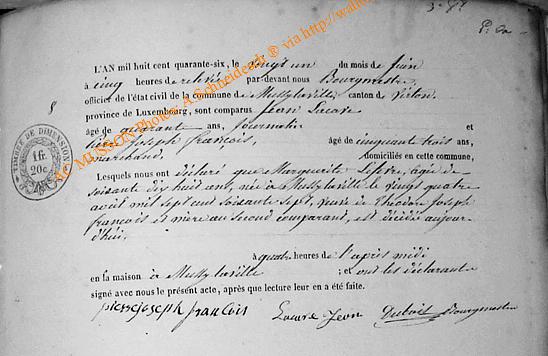 3e. 8t
L'AN mil huit cent quarante-six, le vingt un du mois de Juin
à cinq heures de relevée par-devant nous Bourgmestre
officier de l'état civil de la commune de Mussylaville canton de Virton,
province de Luxembourg, sont comparus Jean Lacave
âgé de quarante ans, Journalier et
pierre Joseph françois, âgé de cinquante trois ans,
marchand, domiciliés en cette commune,
Lesquels nous ont déclaré que Marguerite Lefevre, agée de
soixante dix huit ans, née à Mussylaville le vingt quatre
avril mil sept cent soixante sept, veuve de théodore Joseph
françois et mère au second comparant, est décédée aujour
d'hui,
à quatre heures de l'après midi
en sa maison à Mussylaville ; et ont les déclarants
signé avec nous le présent acte, après que lecture leur en a été faite.
pierre joseph francois Lacave Jean Dubois Bourgmestre
8
TIMBRE DE DIMENSION
1fr.
20c.
MUSSON Photos A Schneider ® via http://